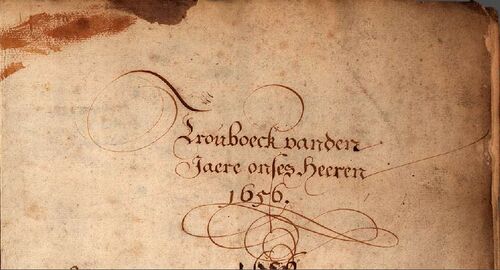 Trouboeck vanden
Jaere onses Heeren
1656.